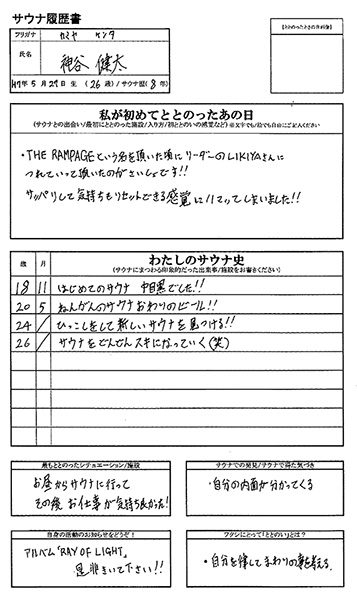 サウナ履歴書
フリガナ カミヤ ケンタ
氏名 神谷 健太
年 5月 29日 生 (26歳) /サウナ歴(8年)
私が初めてととのったあの日
・THE RAMPAGEという名を頂いた頃にリーダーのLIKIYAさんに
つれていって頂いたのがさいしょです!!
サッパリして気持ちもリセットできる感覚にハマってしまいました!!
わたしのサウナ史
(サウナにまつわる印象的だった出来事/施設をお書きください)
歳 月
18 11 はじめてのサウナ 中目黒でした!!
20 5 ねんがんのサウナおわりのビール!!
24 / ひっこしをして新しいサウナを見つける!!
26 / サウナをどんどんスキになっていく(笑)
最もととのったシチュエーション/施設
お昼からサウナに行って
その後お仕事が気持ち良かった!
サウナでの発見/サウナで得た気づき
・自分の内面が分かってくる
自身の活動のお知らせなどどうぞ!
アルバム「RAY OF LIGHT」
是非きいて下さい!!
ワタシにとって「ととのい」とは?
・自分を律してまわりの事を考える